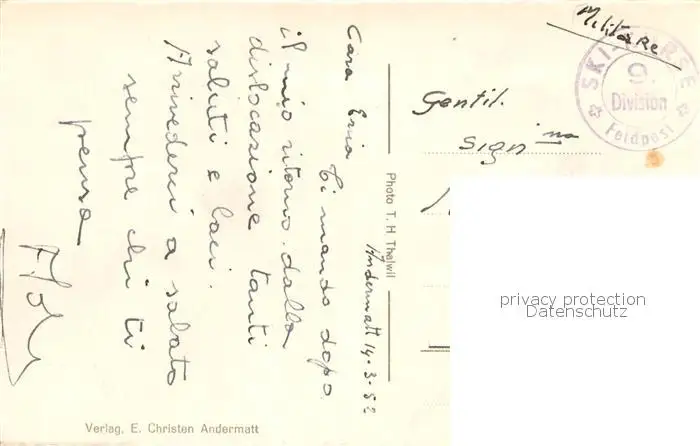 Militare
SKI-KURSE
9.
Division
Feldpost
Gentil.
Sign na
Andermatt 14.3.52
Cara Eria
Ti mando dopo
il mio ritorno dalla
dislocazione tanti
saluti e baci.
Arrivederci a sabato
sempre chi ti
pensa
Photo T. H Thalwil
Verlag. E. Christen Andermatt
privacy protection
Datenschutz